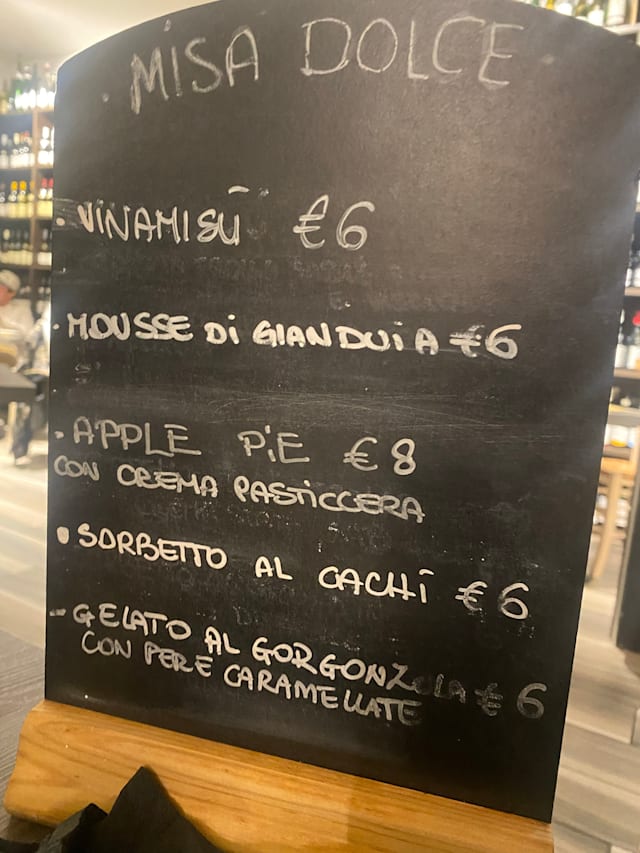 · MISA DOLCE ·
· VINAMISÙ €6
· MOUSSE Di GIANDUiA €6
· APPLE PiE €8
CON CREMA PASTiCCERA
• SORBETTO AL CACHi €6
- GELATO AL GORGONZOLA €6
CON PERE CARAMELLATE